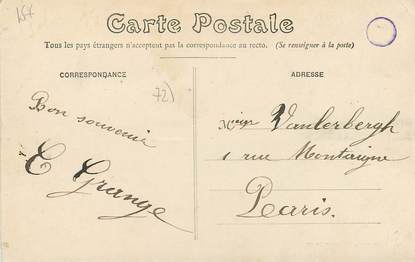 15x
Carte Postale
Tous les pays étrangers n'acceptent pas la correspondance au recto. (Se renseigner à la poste)
CORRESPONDANCE
ADRESSE
72)
Bon souvenir
E Grange
Vanlerbergh
1 rue Montaigne
Paris.